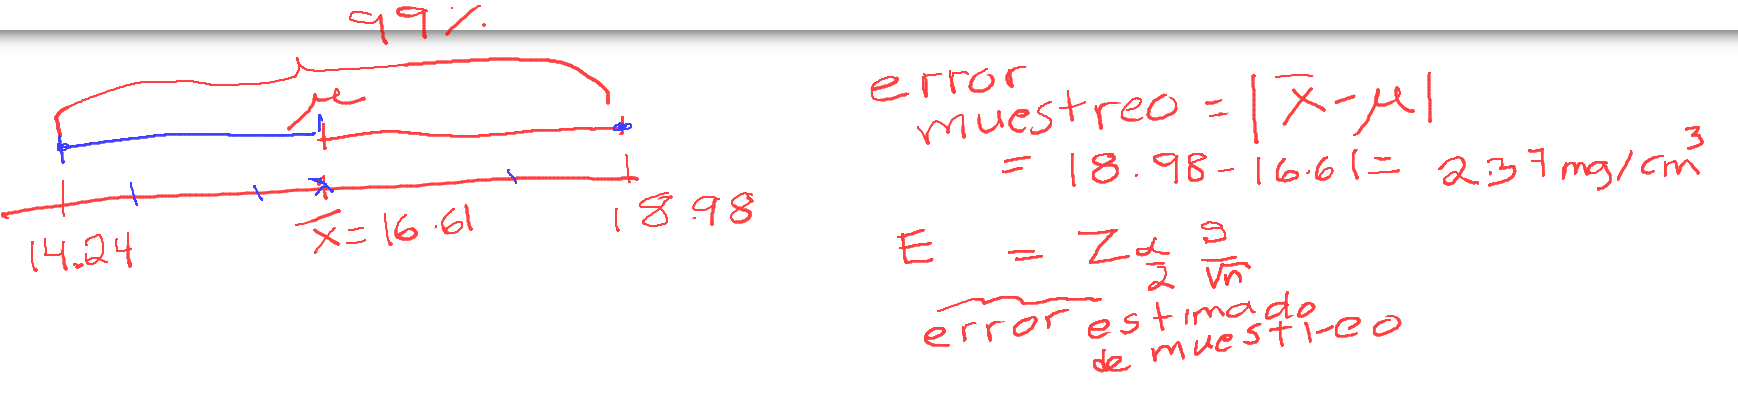 99%
μ
14.24
x̄ = 16.61
18.98
error
muestreo = |x̄ - μ|
= 18.98 - 16.61 = 2.37 mg/cm³
E = Z α/2 s/√n
error estimado
de muestreo